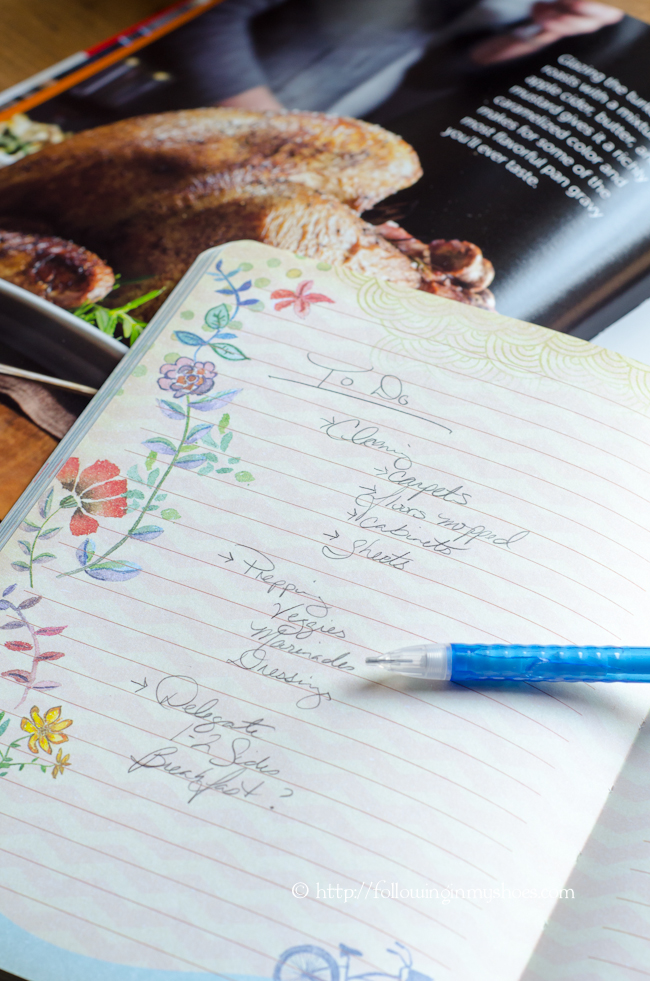 Glazing the turkey
roasts with a
apple cider, butter, and
mustard gives it a richly
caramelized color and
makes for some of the
most flavorful pan gravy
you'll ever taste.
To Do
→ Cleaning
→ Carpets
→ floors mopped
→ Cabinets
→ Sheets
→ Prepping
Veggies
Marinades
Dressings
→ Delegate
1-2 Sides
Breakfast?
© http://followinginmyshoes.com